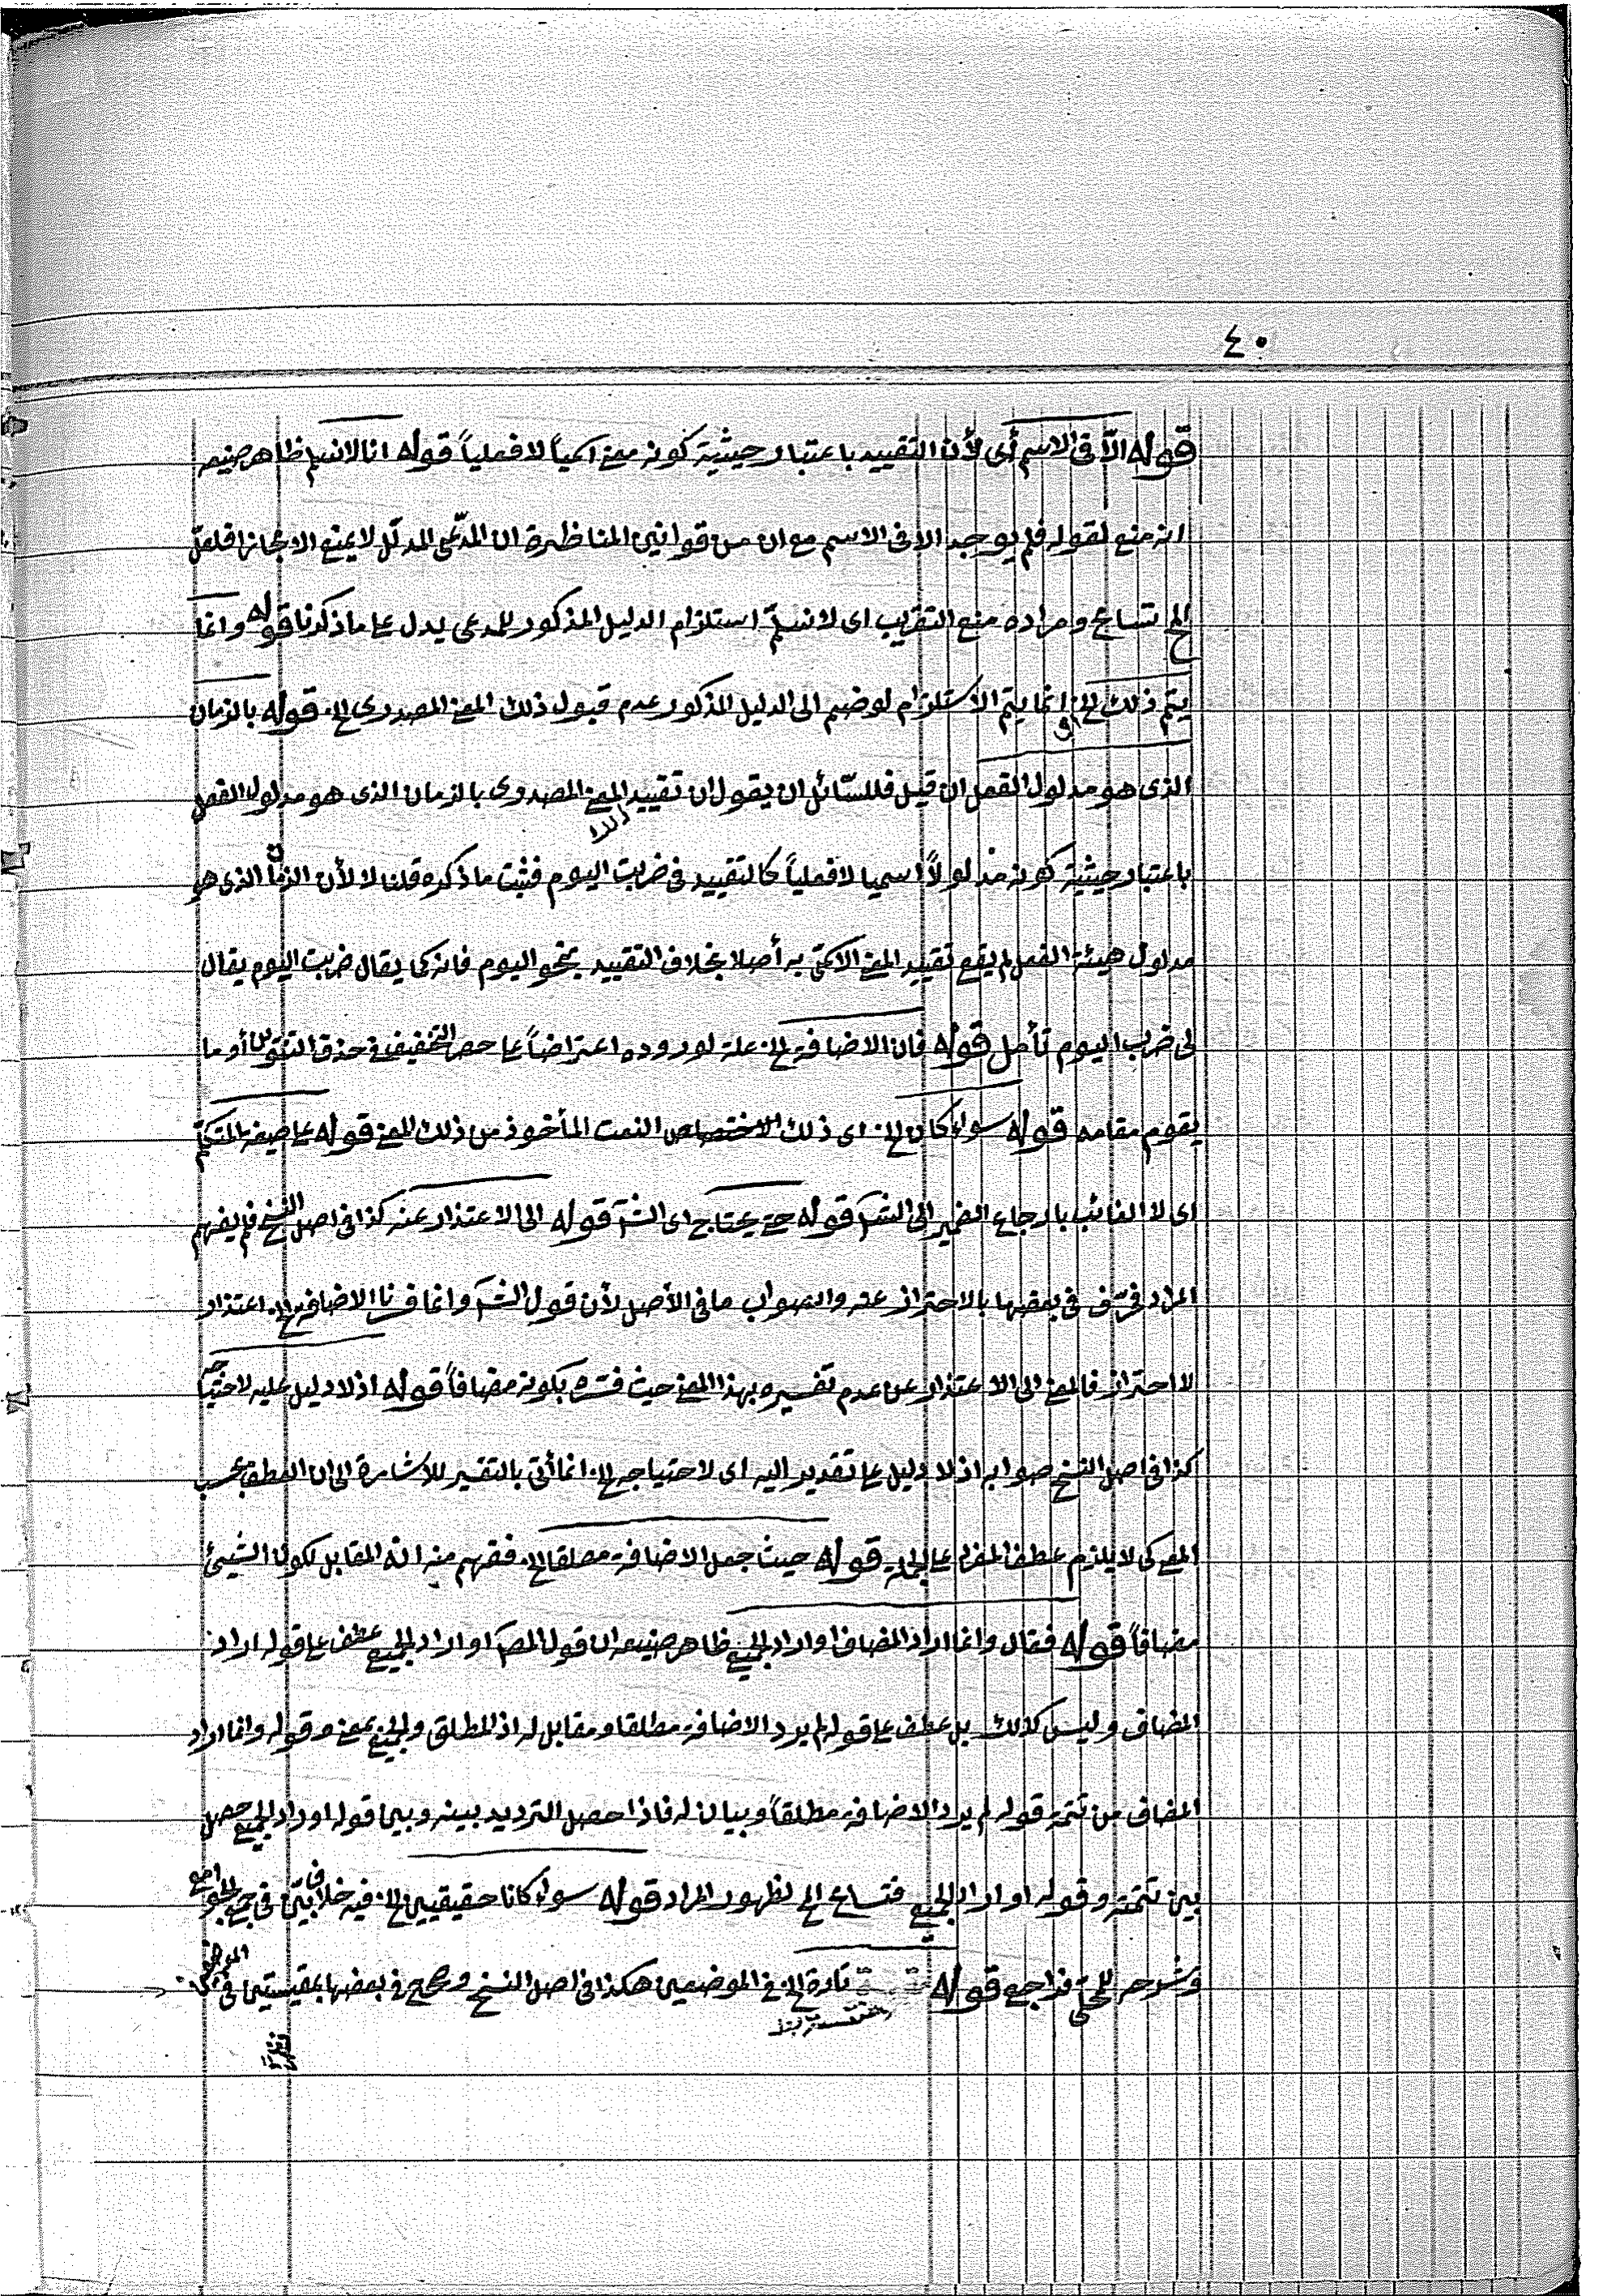 ٤٠
قوله الا فى الاسم أى لأن التقييد باعتبار حيثية كونه معنى اسمياً لا فعلياً قوله انا لا نسلم ظاهر صنيعه
انه منع لقوله فلم يوجد الا فى الاسم مع ان من قوانين المناظرة ان المدّعى المدلّل لا يمنع الا مجازا فلعلّ
الخ تسامح ومراده منع التقريب اى لا نسلّم استلزام الدليل المذكور للمدعى يدل على ما ذكرنا قوله وانما
يتم ذلك الخ اى انما يتم الاستلزام لو ضم الى الدليل المذكور عدم قبول ذلك المعنى المصدرى الخ قوله بالزمان
الذى هو مدلول الفعل ان قيل فللسّائل ان يقول ان تقييد المعنى المصدرى بالزمان الذى هو مدلول الفعل
باعتبار حيثية كونه مدلولاً اسميا لا فعلياً كالتقييد فى ضربت اليوم فثبت ما ذكره قلنا لا لأن الزمان الذى هو
مدلول هيئة الفعل لم يقع تقييد المعنى الاسمى به أصلا بخلاف التقييد بنحو اليوم فانه كما يقال ضربت اليوم يقال
لى ضرب اليوم تأمل قوله فان الاضافة الخ علة لوروده اعتراضاً على حصر التخفيف فى حذف التنوين أو ما
يقوم مقامه قوله سواء كان الخ اى ذلك الاختصاص النعت المأخوذ من ذلك المعنى قوله على صيغة المتكلم
اى لا الغائب بارجاع الضمير الى الشـ قوله حتى يحتاج اى الشـ قوله الى الاعتذار عنه كذا فى اصل النسخ فلم يفهم
المراد فحرّف فى بعضها بالاحتراز عنه والصواب ما فى الأصل لأن قول الشـ وانما فسرنا الاضافة الخ اعتذار
لا احتراز فالمعنى الى الاعتذار عن عدم تفسيره بهذا المعنى حيث فسّره بكونه مضافاً قوله اذ لا دليل عليه لاحتياجه
كذا فى اصل النسخ صوابه اذ لا دليل على تقدير اليه اى لاحتياجه الخ انما أتى بالتفسير للاشارة الى ان العطف بحسب
المعنى كى لا يلزم عطف المفرد على الجملة قوله حيث جعل الاضافة مطلقا الخ ففهم منه انه المقابل لكون الشيئ
مضافاً قوله فقال وانما اراد المضاف او اراد الجميع ظاهر صنيعه ان قول المصـ او اراد الجميع عطف على قوله اراد
المضاف وليس كذلك بل عطف على قوله لم يرد الاضافة مطلقا ومقابل له اذ المطلق والجميع بمعنى وقوله وانما اراد
المضاف من تتمة قوله لم يرد الاضافة مطلقاً وبيان له فاذا حصل الترديد بينه وبين قوله او اراد الجميع حصل
بين تتمته وقوله او اراد الجميع فتسامح الخ لظهور المراد قوله سواء كانا حقيقيين الخ فيه خلاف بيّن فى جمع الجوامع
وشرحه للمحلى فراجع قوله تارة الخ فى الموضعين هكذا فى اصل النسخ وصحح فى بعضها بمقيستين فى الموضعين